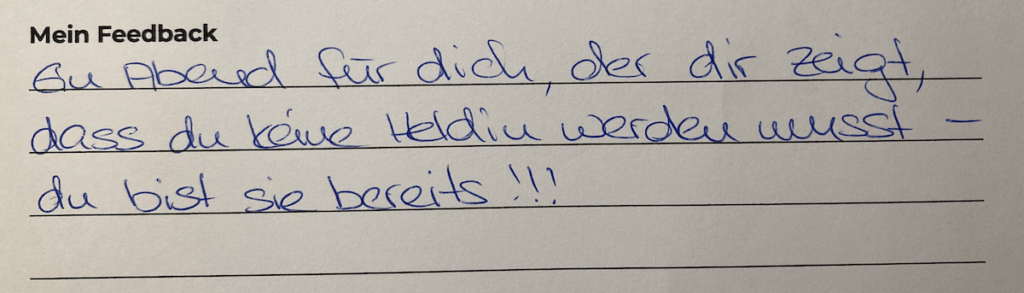 Mein Feedback
Ein Abend für dich, der dir zeigt,
dass du keine Heldin werden musst –
du bist sie bereits!!!